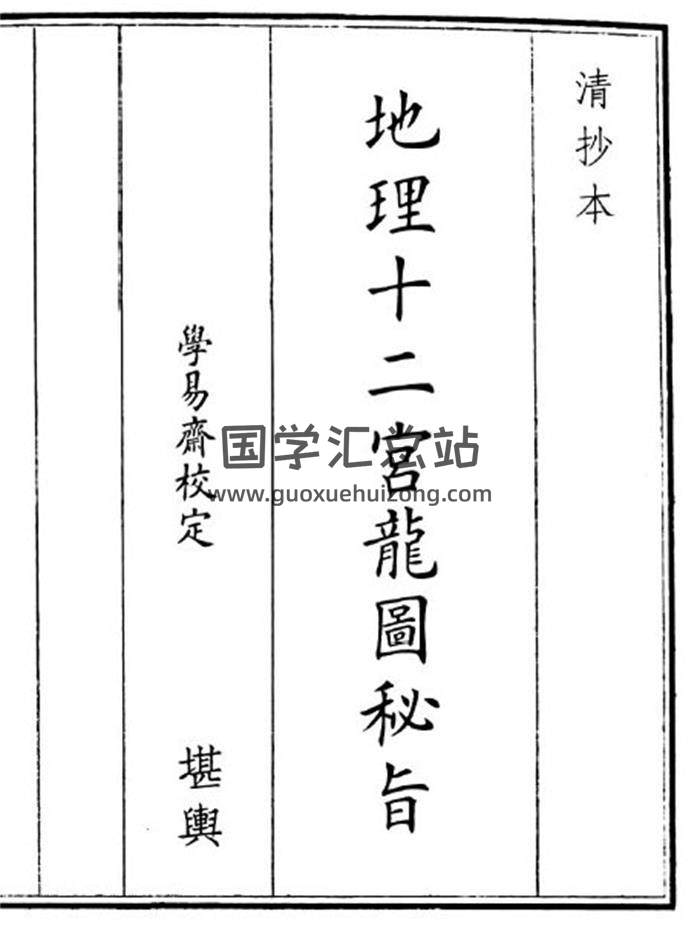 清抄本
地理十二宮龍圖秘旨
學易齋校定
堪輿
国学汇总站
www.guoxuehuizong.com